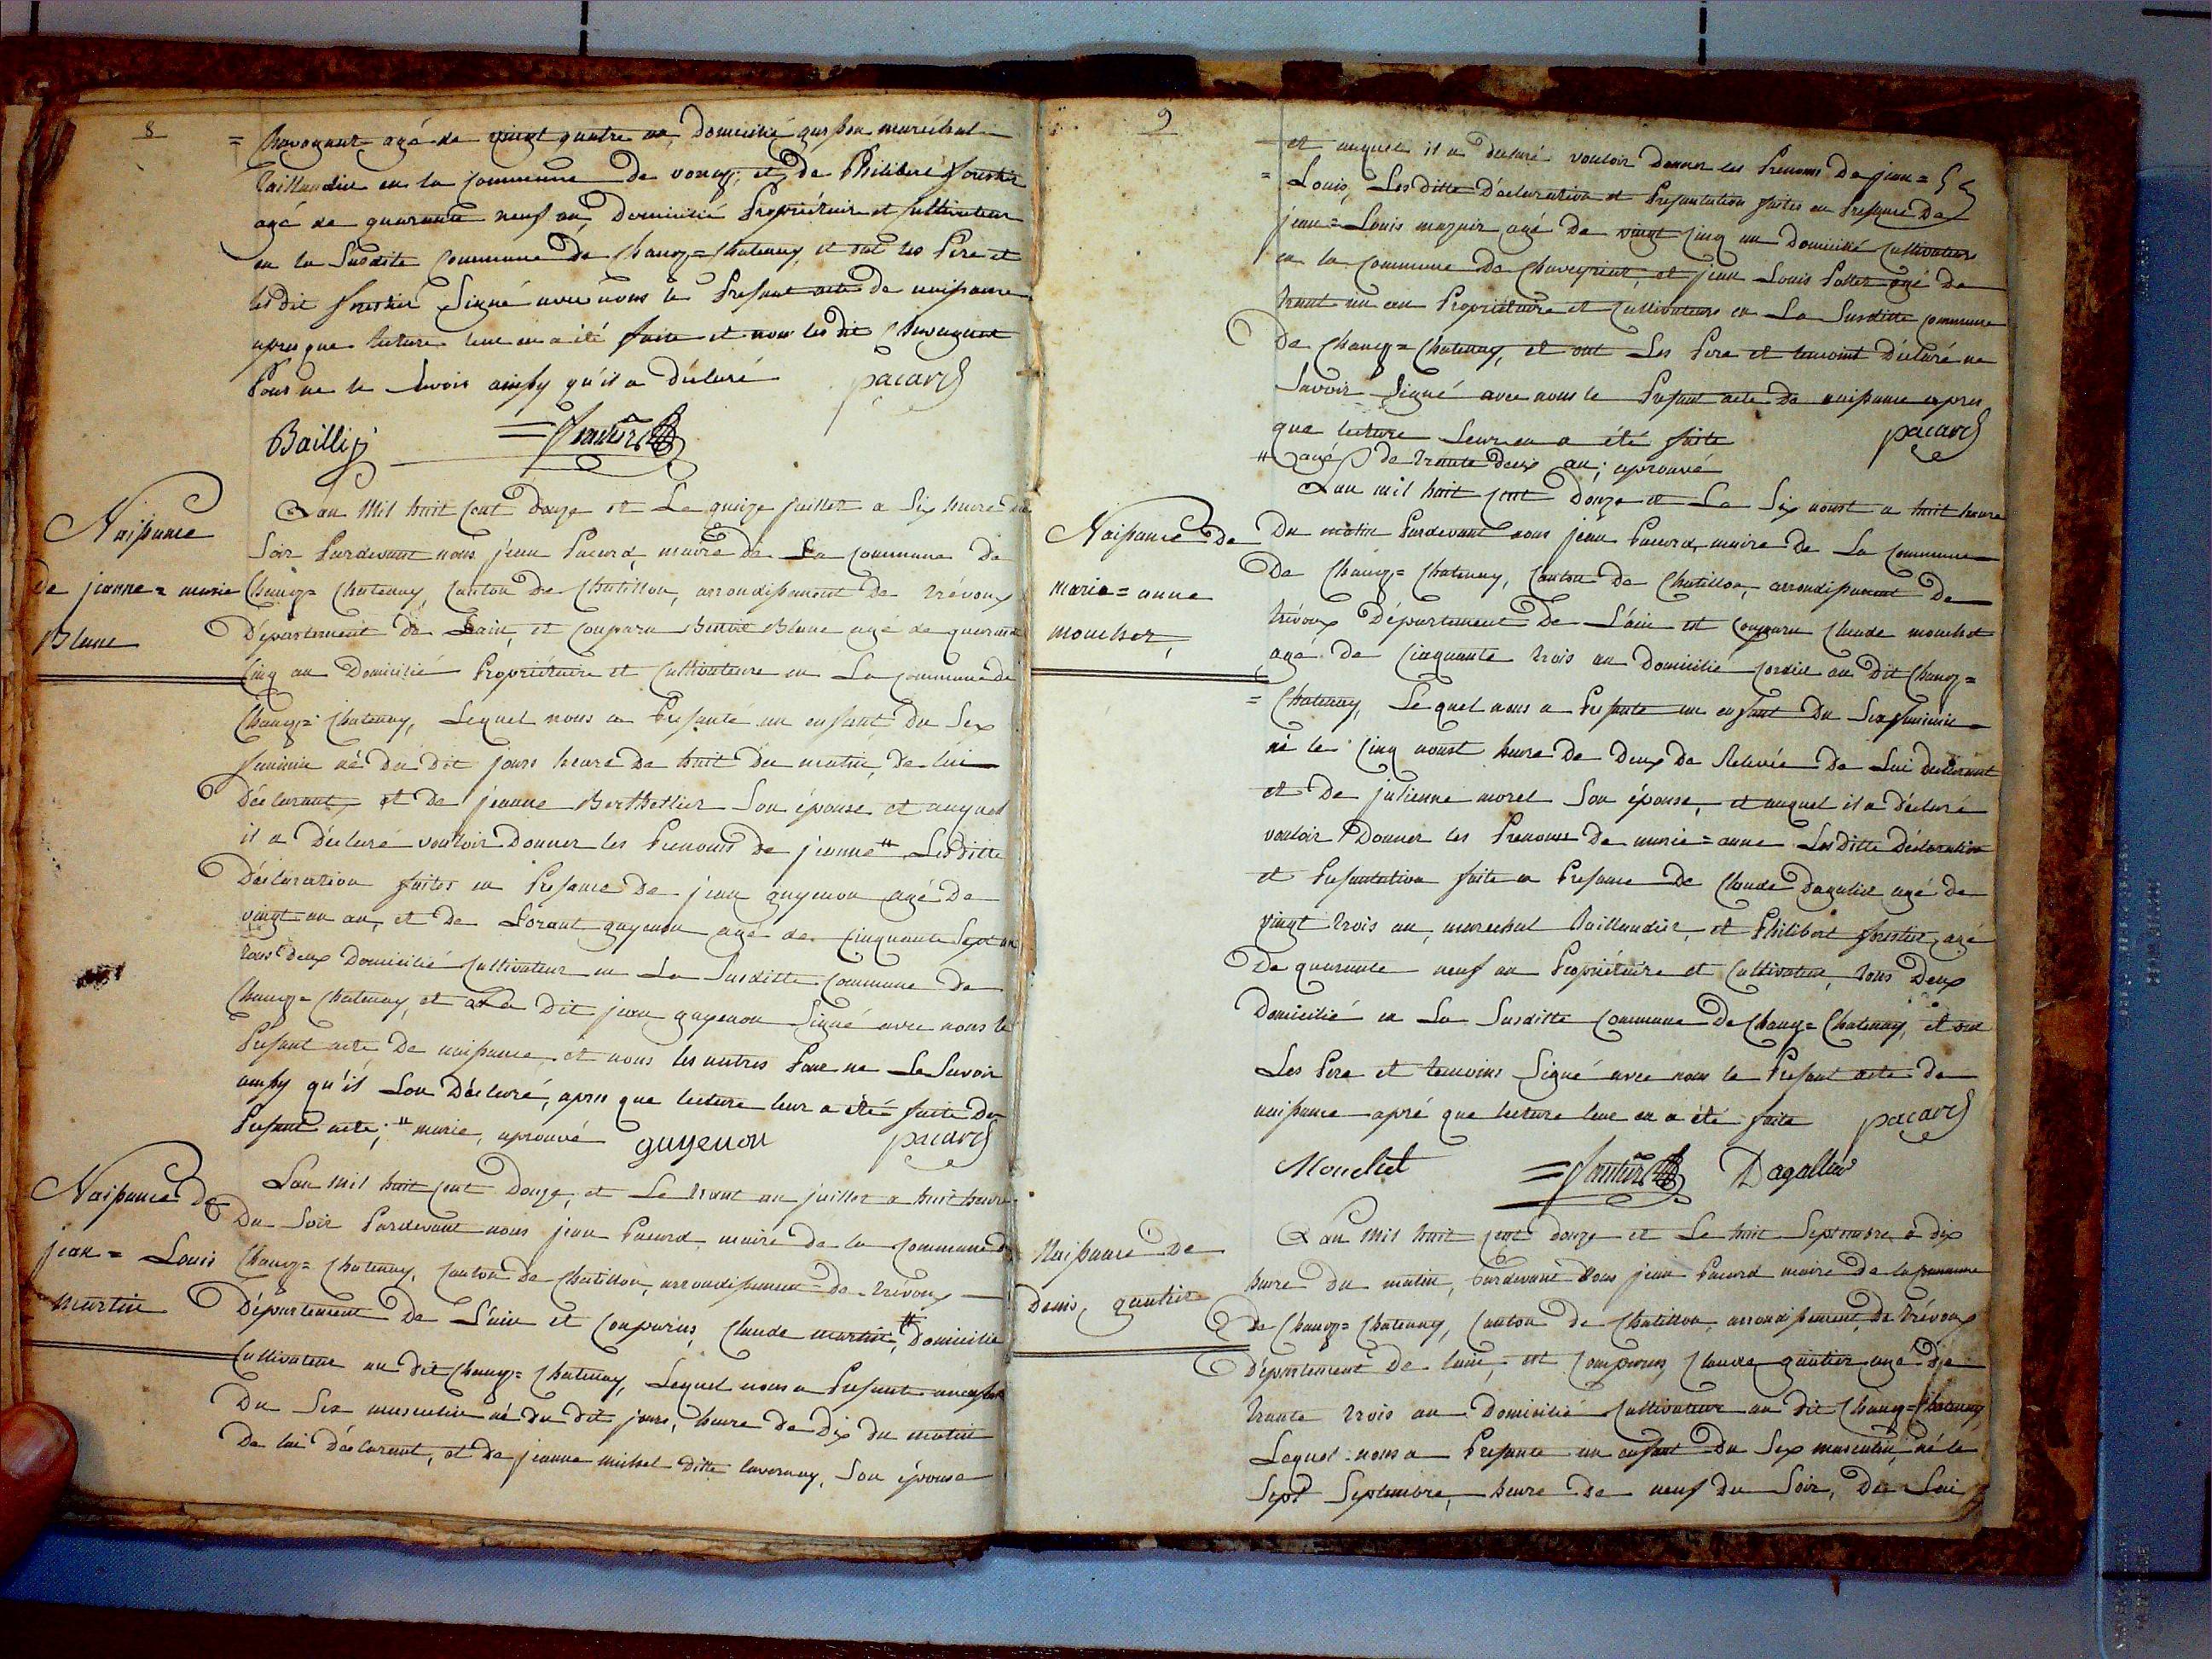 8
= Chavagnat agé de vingt quatre an, Domicilié garson maréchal
Taillandier en la Commune de vonas; et de Philibert forestier
agé de quarante neuf an, Domicilié Propriétaire et Cultivateur
en la Susdite Commune de Chanoz=Chatenay, et ont les Pere et
lesdit forestier Signé avec nous le Present acte de naissance
apres que lecture leur en a été faite et non lesdit Chavagnat
Pour ne le Savoir ainsy qu'il a Déclaré pacard
Bailly
Naissance
de jeanne=marie
Blanc
L'an Mil huit Cent Douze et Le quinze juillet a Six heure du
Soir Pardevant nous jean Pacard, maire de La Commune de
Chanoz=Chatenay, Canton de Chatillon, arrondissement de trévoux
Département de Lain, et Comparu Blanc agé de quarante
Cinq an Domicilié Propriétaire et Cultivateure en La Commune de
Chanoz=Chatenay, Lequel nous a Presanté un enfant Du Sex
feminin né Du Dit jours heure De huit Du matin, de lui
Déclarant, et De jeanne Berthellier Son épouse et auquel
il a Déclaré vouloir Donner les Prenoms de jeanne " Lesditte
Déclaration faites en Presance De jean guyenon agé De
vingt un an, et De Lorant guyenon agé de Cinquante Sept an
tous Deux Domicilié Cultivateur en La Susditte Commune De
Chanoz=Chatenay, et a Le Dit jean guyenon Signé avec nous le
Presant acte De naissance et nons les autres Pour ne Le Savoir
ainsy qu'il Lon Déclaré, apres que lecture leur a été faite Du
Presant acte; " marie, aprouvé guyenon pacard
Naissance de
jean=Louis
martin
L'an Mil huit Cent Douze, et Le trant un juillet a huit heure
Du Soir Pardevant nous jean Pacard maire De la Commune de
Chanoz=Chatenay, Canton De Chatillon, arrondissement De trévoux
Département De L'ain et Comparus, Claude martin, " Domicilié
Cultivateur au dit Chanoz=Chatenay, Lequel nous a Presanté un enfant
Du Sex masculin né Du Dit jours, heure De Dix Du matin
De lui Déclarant, et De jeanne michel Ditte lavernay, Son épouse
9
et auquel il a Déclaré vouloir Donner les Prenoms De jean=
=Louis, Lesditte Déclaration et Presantation faites en Presance De
jean=Louis agé De vingt Cinq an Domicilié Cultivateur
en la Commune De Chaveyriat, et jean Louis agé De
trant un an Propriétaire et Cultivateure en La Susditte Commune
De Chanoz=Chatenay, et ont Les Pere et temoint Déclaré ne
Savoir Signé avec nous le Presant acte De naissance apres
que lecture Leur en a été faite pacard
" agé De trante Deux an; aprouvé
Naissance De
marie=anne
mouchet,
L'an mil huit Cent Douze et Le Six aoust a huit heure
Du matin Pardevant nous jean Pacard, maire De La Commune
De Chanoz=Chatenay, Canton De Chatillon, arrondissement De
trévoux Département De L'ain est Comparu Claude mouchet
agé De Cinquante trois an Domicilié au Dit Chanoz=
=Chatenay, Lequel nous a Presanté un enfant Du Sex feminin
né le Cinq aoust heure De Deux De Relevée De Lui Déclarant
et De julienne morel Son épouse, et auquel il a Déclaré
vouloir Donner les Prenoms De marie=anne Lesditte Déclaration
et Presantation faite en Presance De Claude Dagallier agé De
vingt trois an, marechal Taillandier, et Philibert forestier, agé
De quarante neuf an Propriétaire et Cultivateur, tous Deux
Domicilié en La Susditte Commune De Chanoz=Chatenay, et ont
Les Pere et temoins Signé avec nous le Presant acte De
naissance apré que lecture leur en a été faite pacard
Mouchet Dagallier
Naissance De
Denis, gautier
L'an Mil huit Cent douze et Le huit Septembre a dix
heure du matin, Pardevant Nous jean Pacard maire De la Commune
De Chanoz=Chatenay, Canton De Chatillon, arrondissement, De trévoux
Département De lain, est Comparus, Claude gautier agé De
trante trois an Domicilié Cultivateur au dit Chanoz=Chatenay
Lequel nous a Presanté un enfant Du Sex masculin, né le
Sept Septembre, heure De neuf Du Soir, De Lui